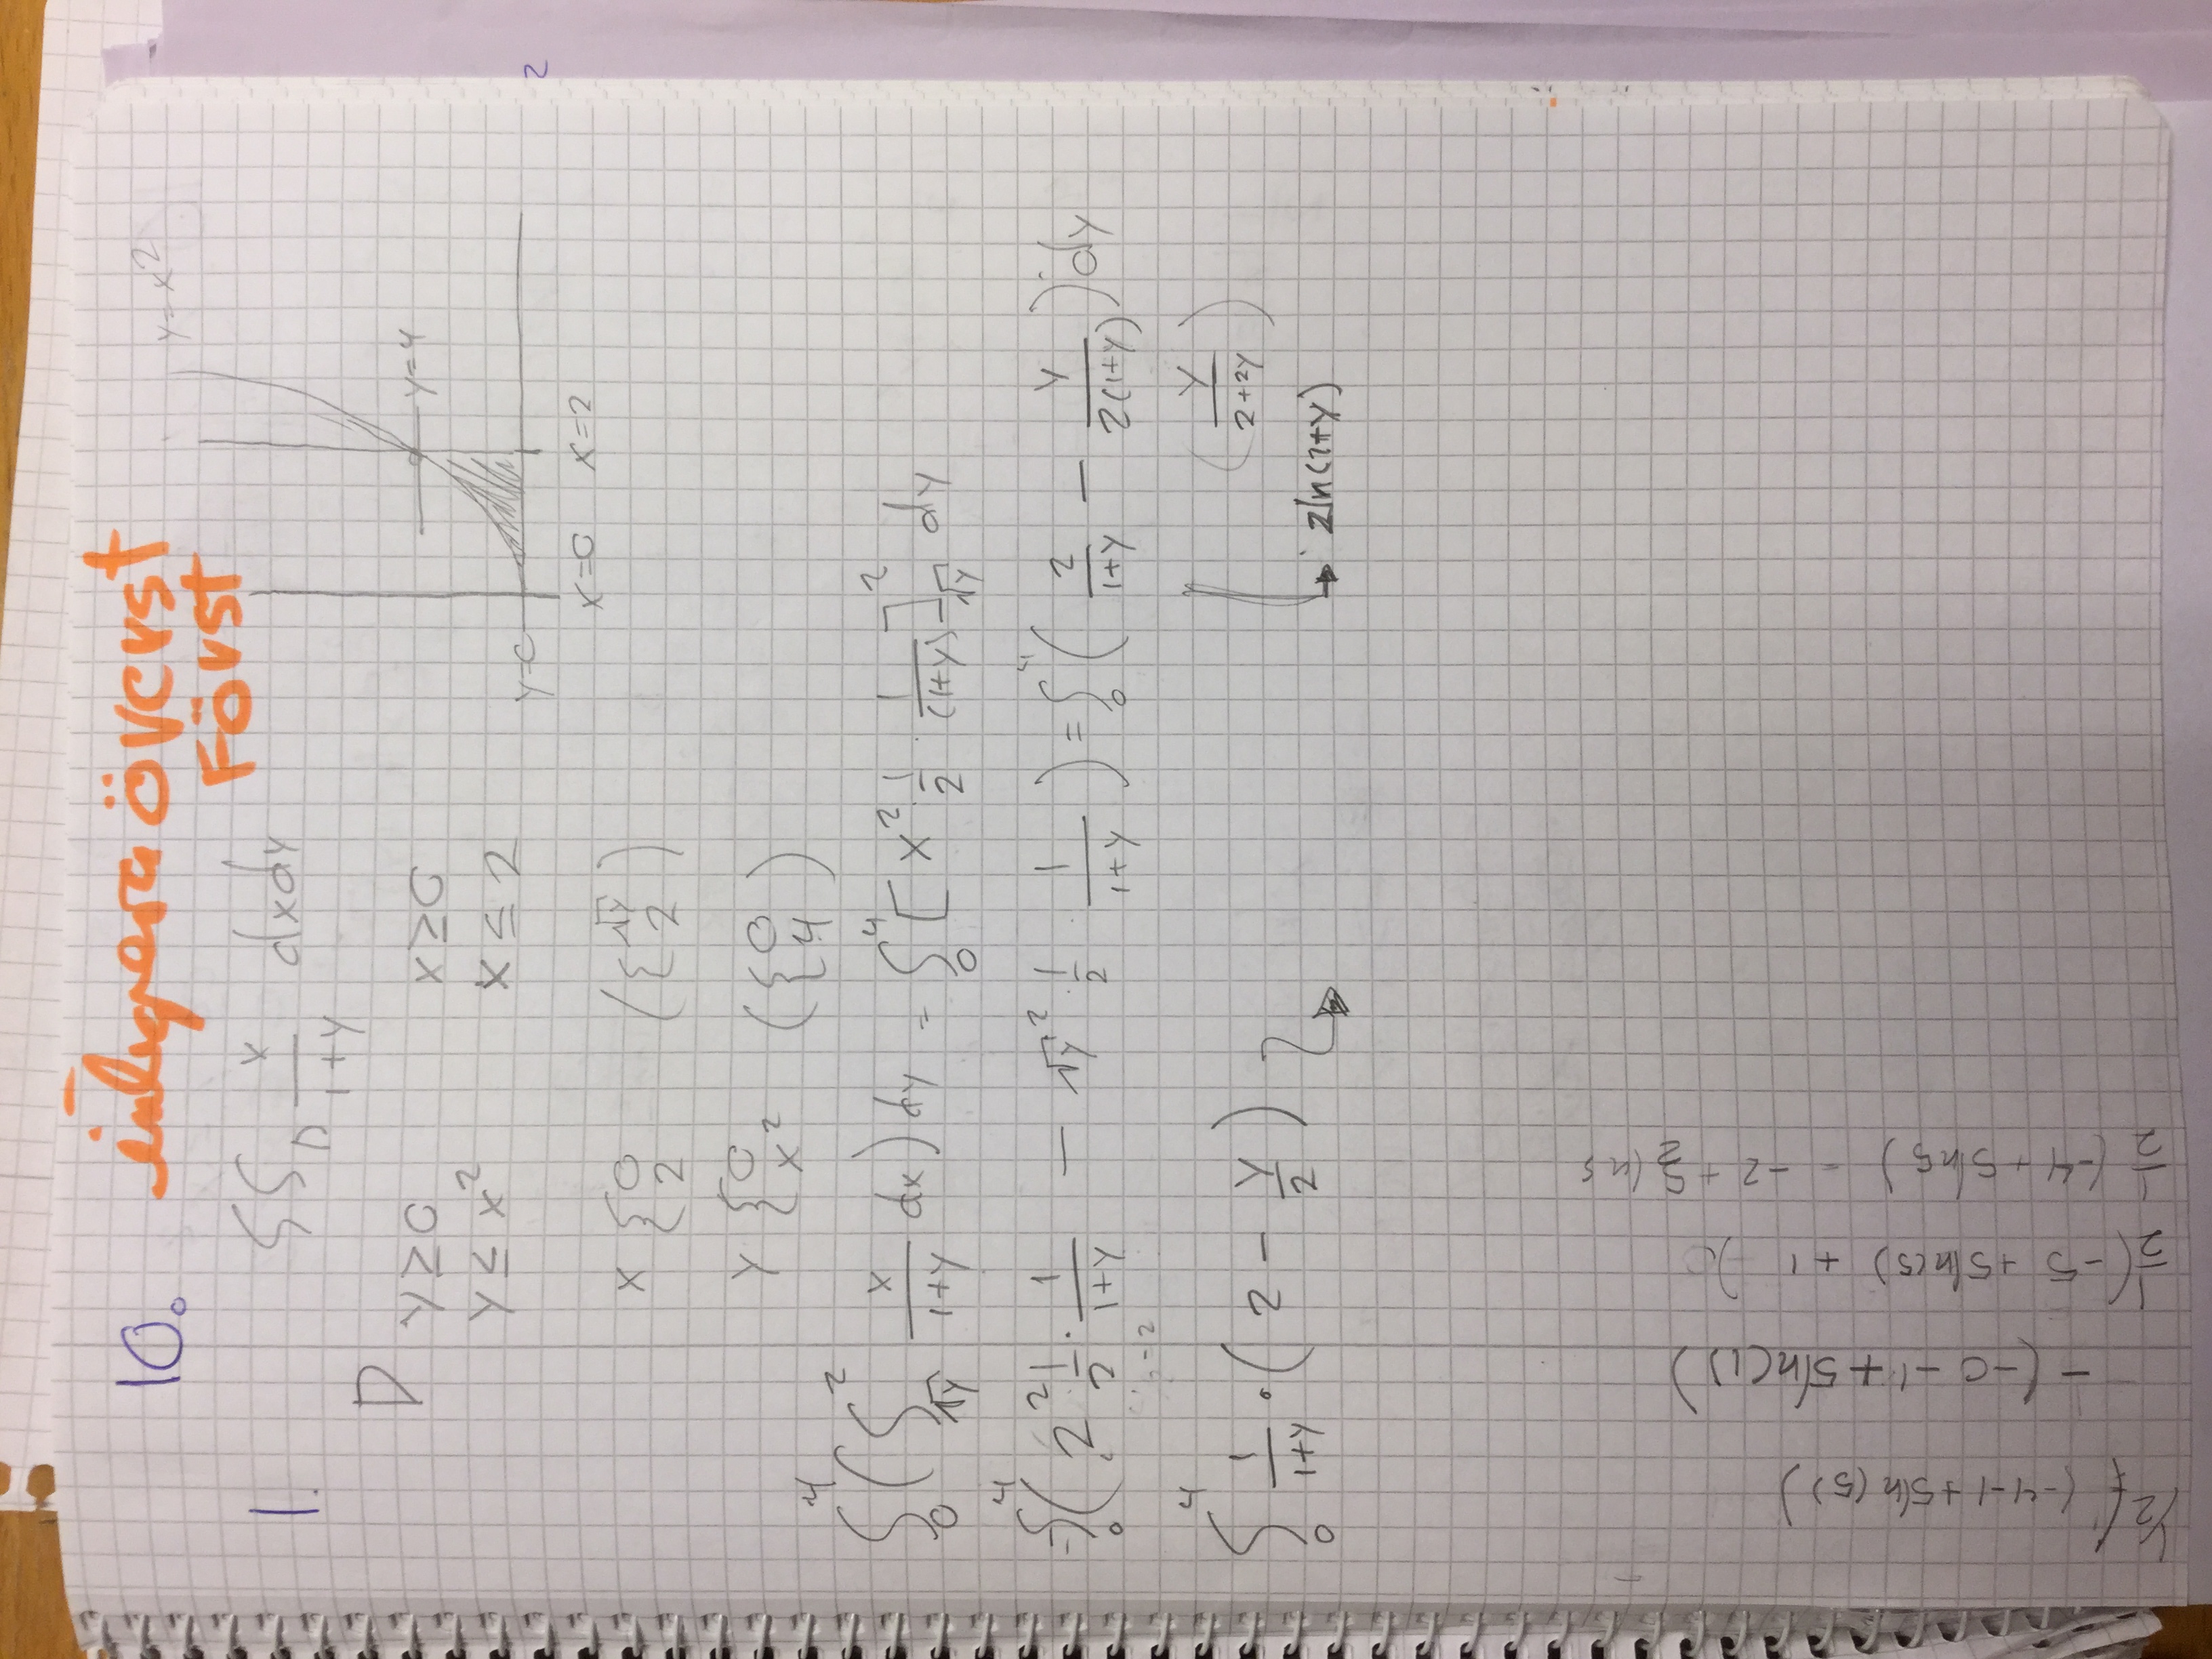 10. integrera överst
Först
y=x²
1. ∫∫_D x/(1+y) dxdy
D y≥0 x≥0
y≤x² x≤2
y=4
y=0
x=0 x=2
x {0 2 ({√y 2)
y {0 x² ({0 4)
∫₀⁴ (∫_√y² x/(1+y) dx) dy = ∫₀⁴ [x² · 1/2 · 1/(1+y)]_√y² dy
= ∫₀⁴ (2² · 1/2 · 1/(1+y) − √y² · 1/2 · 1/(1+y)) = ∫₀⁴ (2/(1+y) − y/(2(1+y))) dy
=2
(y/(2+2y))
∫₀⁴ 1/(1+y) · (2 − y/2)
2ln(1+y)
1/2 ( (-4-1+5ln(5))
− (-0-1+5ln(1))
1/2 (-5+5ln(5) +1 )
1/2 (-4+5ln5) = -2 + 5/2 ln5
2